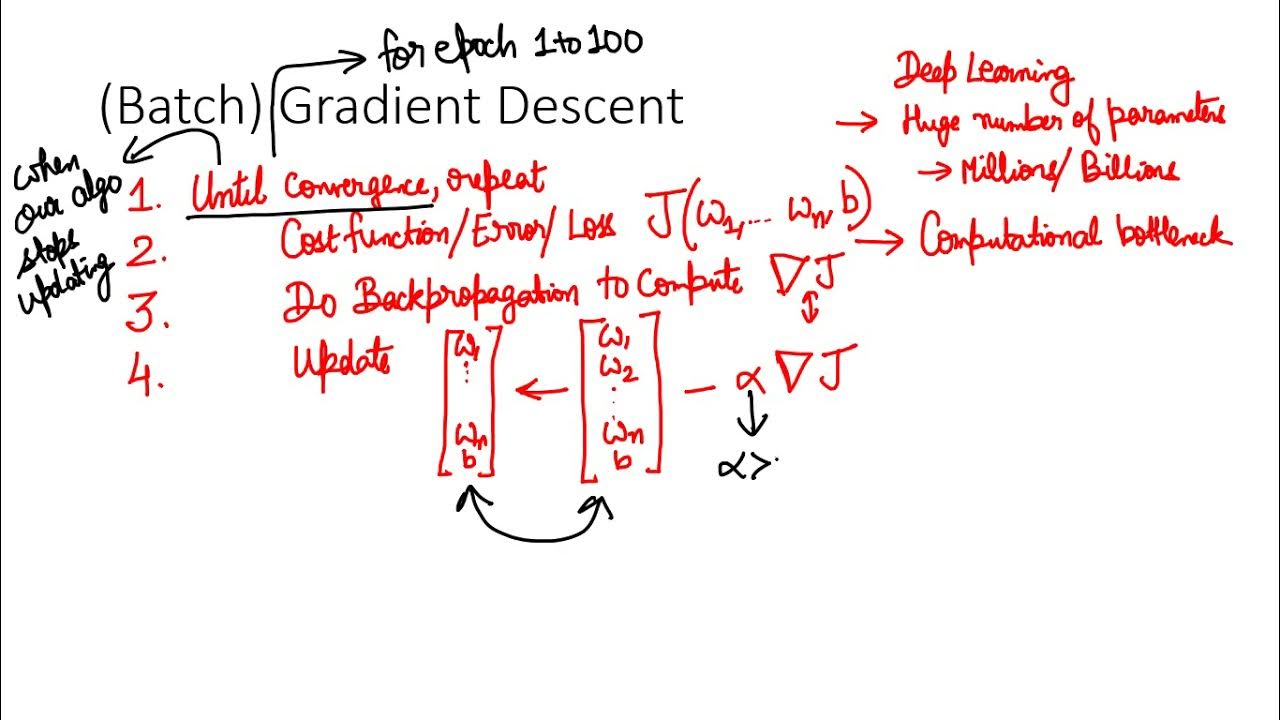 for epoch 1 to 100
(Batch) Gradient Descent
when
our algo
stops
updating
1. Until convergence, repeat
2. Cost function/Error/Loss J(ω₁,... ωn, b)
3. Do Backpropagation to compute ∇J
4. Update [ω₁ ⋮ ωn b] ← [ω₁ ω₂ ⋮ ωn b] − α ∇J
α>
Deep Learning
→ Huge number of parameters
→ Millions/Billions
→ Computational bottleneck